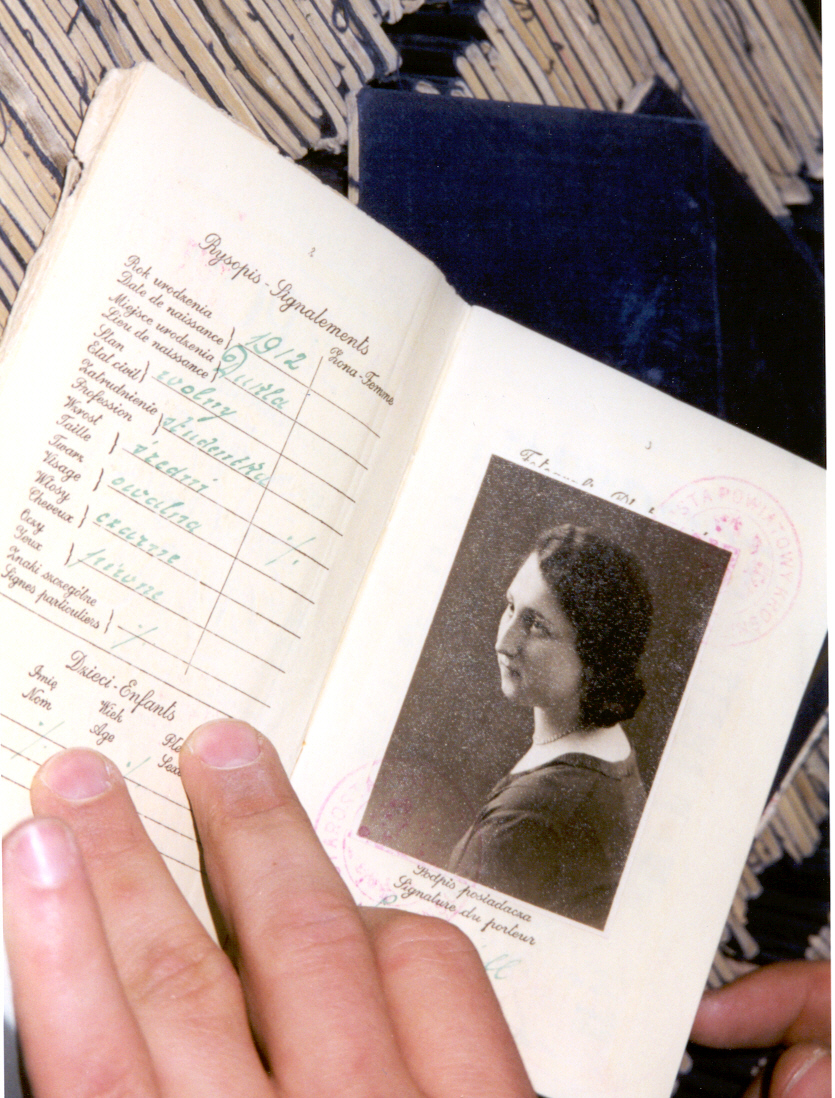 2
Rysopis-Signalements
Żona-Femme
Rok urodzenia
Date de naissance } 1912
Miejsce urodzenia
Lieu de naissance } Dukla
Stan
Etat civil } wolny
Zatrudnienie
Profession } studentka
Wzrost
Taille } średni
Twarz
Visage } owalna
Włosy
Cheveux } czarne
Oczy
Yeux } piwne
Znaki szczególne
Signes particuliers } ⁒
⁒
Dzieci-Enfants
Imię Wiek
Nom Age Sexe
3
STAROSTA POWIATOWY
Podpis posiadacza
Signature du porteur